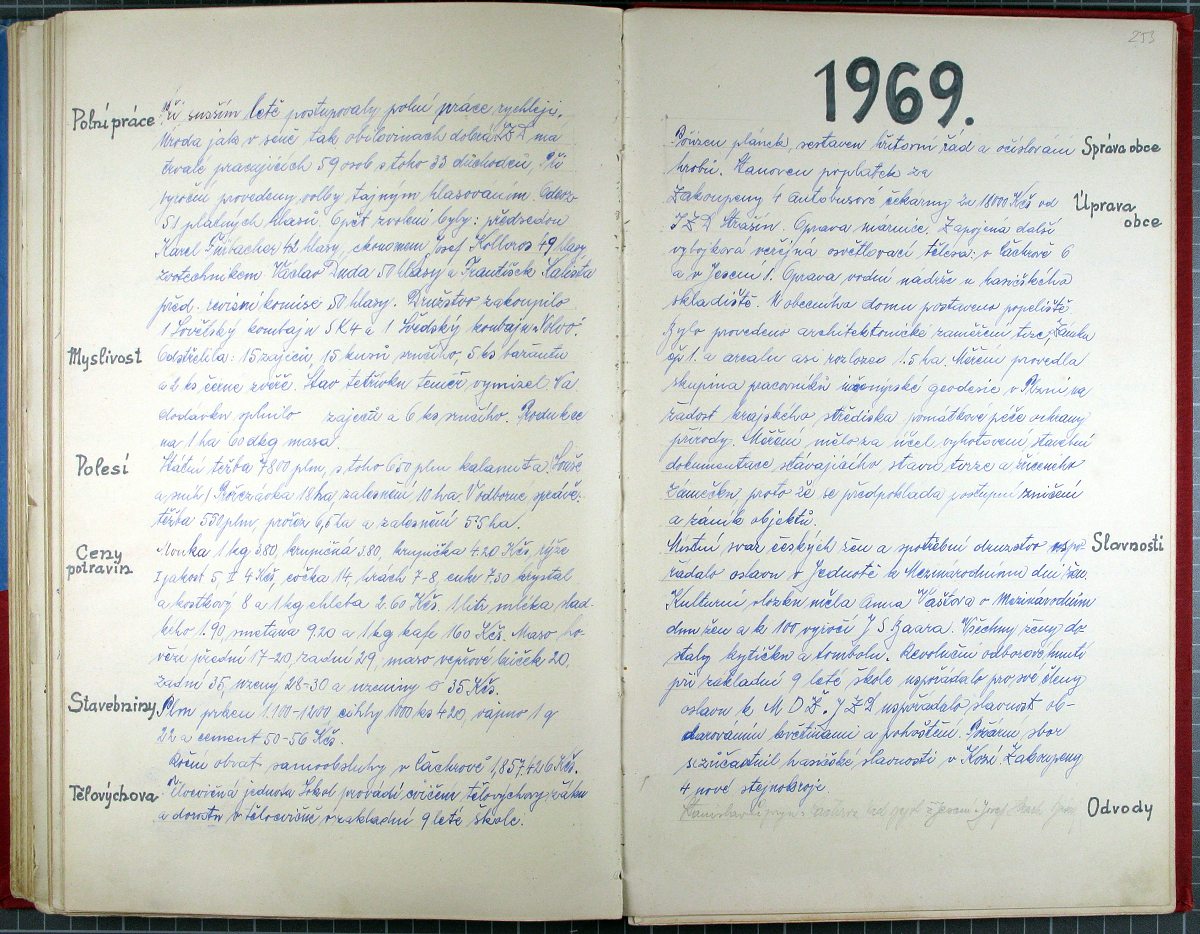 Polní práce
Při sušším letě postupovaly polní práce rychleji.
Úroda jak v seně tak obilovinach dobrá. JZD ma
trvale pracujících 59 osob s toho 33 důchodců. Při
vyroční provedeny volby tajným hlasováním. Odevz
51 platných hlasů. Opět zvoleni byly: předsedou
Karel 42 hlasy, ekonomem Josef Kolloros 49 hlasy,
zootechnikem Václav Duda 50 hlasy a František
před. revisní komise 50 hlasy. Družstvo zakoupilo
1 Sovětský kombajn SK4 a 1 Švédský kombajn Volvo.
Myslivost
Odstřelila: 15 zajíců, 15 kusů srnčího, 5 ks bažantu
a 2 ks černe zvěře. Stav tetřívku temeř vymizel. Na
dodávku splnilo zajeců a 6 ks srnčího. Produkce
na 1 ha 60 dkg masa.
Polesí
Státní těžba 7800 plm, s toho 650 plm kalamita (Souše
a sníh) Prořezávka 18 ha, zalesnění 10 ha. V odborne správě:
těžba 550 plm, prořez 6,5 ha a zalesnění 5.5 ha.
Ceny potravin
Mouka 1 kg 380, krupičná 380, krupička 4.20 Kčs, rýže
I jakost 5, II 4 Kčs, čočka 14, hrách 7-8, cukr 730 krystal
a kostkový 8 a 1 kg chleba 2.60 Kčs. 1 litr mléka slad-
keho 1.90, smetana 920 a 1 kg kafe 160 Kčs. Maso, ho-
vězí přední 17-20, zadní 29, maso vepřové bůček 20.
zadní 35, uzeny 28-30 a uzeniny 35 Kčs.
Stavebniny
Plm prken 1.100-1200, cihly 1000 ks 420, vápno 1 q
22 a cement 50-56 Kčs.
Roční obrat samoobsluhy v Čachrově 1,857.426 Kčs.
Tělovýchova
Tělocvičná jednota Sokol provádí cvičení tělovýchovy žáku
a dorostu v tělocvičně v zakladní 9 leté školc.
253
1969.
Správa obce
Pořízen plánek, sestaven hřbitovní řád a očíslovaní
hrobů. Stanoven poplatek za
Úprava obce
Zakoupeny 4 autobusové čekarny za 18000 Kčs od
JZD Strašín. Oprava márnice. Zapojena další
vybojková veřejná osvětlovací tělesa: v Čáchrově 6
a v Jesení 1. Oprava vodní nadrže u hasičského
skladiště. U obecního domu postaveno popeliště
Bylo provedeno architektonické zaměření tvrze, Zamku
čp 1. a arealu asi rozlozeo 1.5 ha. Měření provedla
skupina pracovníků inženyrské geodesie v Plzni na
žadost krajského střediska památkové péče ochrany
přírody. Měření mělo za účel vyhotovení stavební
dokumentace stávajícího stavu tvrze a zříceního
zámečku proto že se předpoklada postupní zničení
a zánik objektů.
Slavnosti
Místní svaz českých žen a spotřební druzstvo uspo-
řádalo oslavu v Jednotě k Mezinárodnímu dni žen.
Kulturní vložku měla Anna Vaštova o Mezinárodním
dnu žen a k 100 vyročí J S Baara. Všechny ženy do-
staly kytičku a tombolu. Revoluční odborové hnutí
při zakladní 9 leté škole uspořádalo pro své členy
oslavu k M D Ž. J Z D uspořádalo slavnost ob-
darováním květinami a pohoštění. Požární sbor
se zúčastnil hasičské slavnosti v Koží Zakoupeny
4 nové stejnokroje.
Odvody
Stanislav